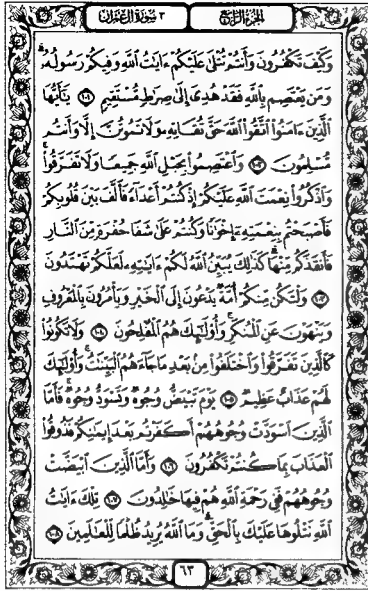 الجزء الرابع ٣ سورة آل عمران
وَكَيْفَ تَكْفُرُونَ وَأَنتُمْ تُتْلَىٰ عَلَيْكُمْ ءَايَٰتُ ٱللَّهِ وَفِيكُمْ رَسُولُهُۥ ۗ
وَمَن يَعْتَصِم بِٱللَّهِ فَقَدْ هُدِىَ إِلَىٰ صِرَٰطٍ مُّسْتَقِيمٍ ١٠١ يَٰٓأَيُّهَا
ٱلَّذِينَ ءَامَنُوا۟ ٱتَّقُوا۟ ٱللَّهَ حَقَّ تُقَاتِهِۦ وَلَا تَمُوتُنَّ إِلَّا وَأَنتُم
مُّسْلِمُونَ ١٠٢ وَٱعْتَصِمُوا۟ بِحَبْلِ ٱللَّهِ جَمِيعًا وَلَا تَفَرَّقُوا۟ ۚ
وَٱذْكُرُوا۟ نِعْمَتَ ٱللَّهِ عَلَيْكُمْ إِذْ كُنتُمْ أَعْدَآءً فَأَلَّفَ بَيْنَ قُلُوبِكُمْ
فَأَصْبَحْتُم بِنِعْمَتِهِۦٓ إِخْوَٰنًا وَكُنتُمْ عَلَىٰ شَفَا حُفْرَةٍ مِّنَ ٱلنَّارِ
فَأَنقَذَكُم مِّنْهَا ۗ كَذَٰلِكَ يُبَيِّنُ ٱللَّهُ لَكُمْ ءَايَٰتِهِۦ لَعَلَّكُمْ تَهْتَدُونَ
١٠٣ وَلْتَكُن مِّنكُمْ أُمَّةٌ يَدْعُونَ إِلَى ٱلْخَيْرِ وَيَأْمُرُونَ بِٱلْمَعْرُوفِ
وَيَنْهَوْنَ عَنِ ٱلْمُنكَرِ ۚ وَأُو۟لَٰٓئِكَ هُمُ ٱلْمُفْلِحُونَ ١٠٤ وَلَا تَكُونُوا۟
كَٱلَّذِينَ تَفَرَّقُوا۟ وَٱخْتَلَفُوا۟ مِنۢ بَعْدِ مَا جَآءَهُمُ ٱلْبَيِّنَٰتُ ۚ وَأُو۟لَٰٓئِكَ
لَهُمْ عَذَابٌ عَظِيمٌ ١٠٥ يَوْمَ تَبْيَضُّ وُجُوهٌ وَتَسْوَدُّ وُجُوهٌ ۚ فَأَمَّا
ٱلَّذِينَ ٱسْوَدَّتْ وُجُوهُهُمْ أَكَفَرْتُم بَعْدَ إِيمَٰنِكُمْ فَذُوقُوا۟
ٱلْعَذَابَ بِمَا كُنتُمْ تَكْفُرُونَ ١٠٦ وَأَمَّا ٱلَّذِينَ ٱبْيَضَّتْ
وُجُوهُهُمْ فَفِى رَحْمَةِ ٱللَّهِ هُمْ فِيهَا خَٰلِدُونَ ١٠٧ تِلْكَ ءَايَٰتُ
ٱللَّهِ نَتْلُوهَا عَلَيْكَ بِٱلْحَقِّ ۗ وَمَا ٱللَّهُ يُرِيدُ ظُلْمًا لِّلْعَٰلَمِينَ ١٠٨
٦٣